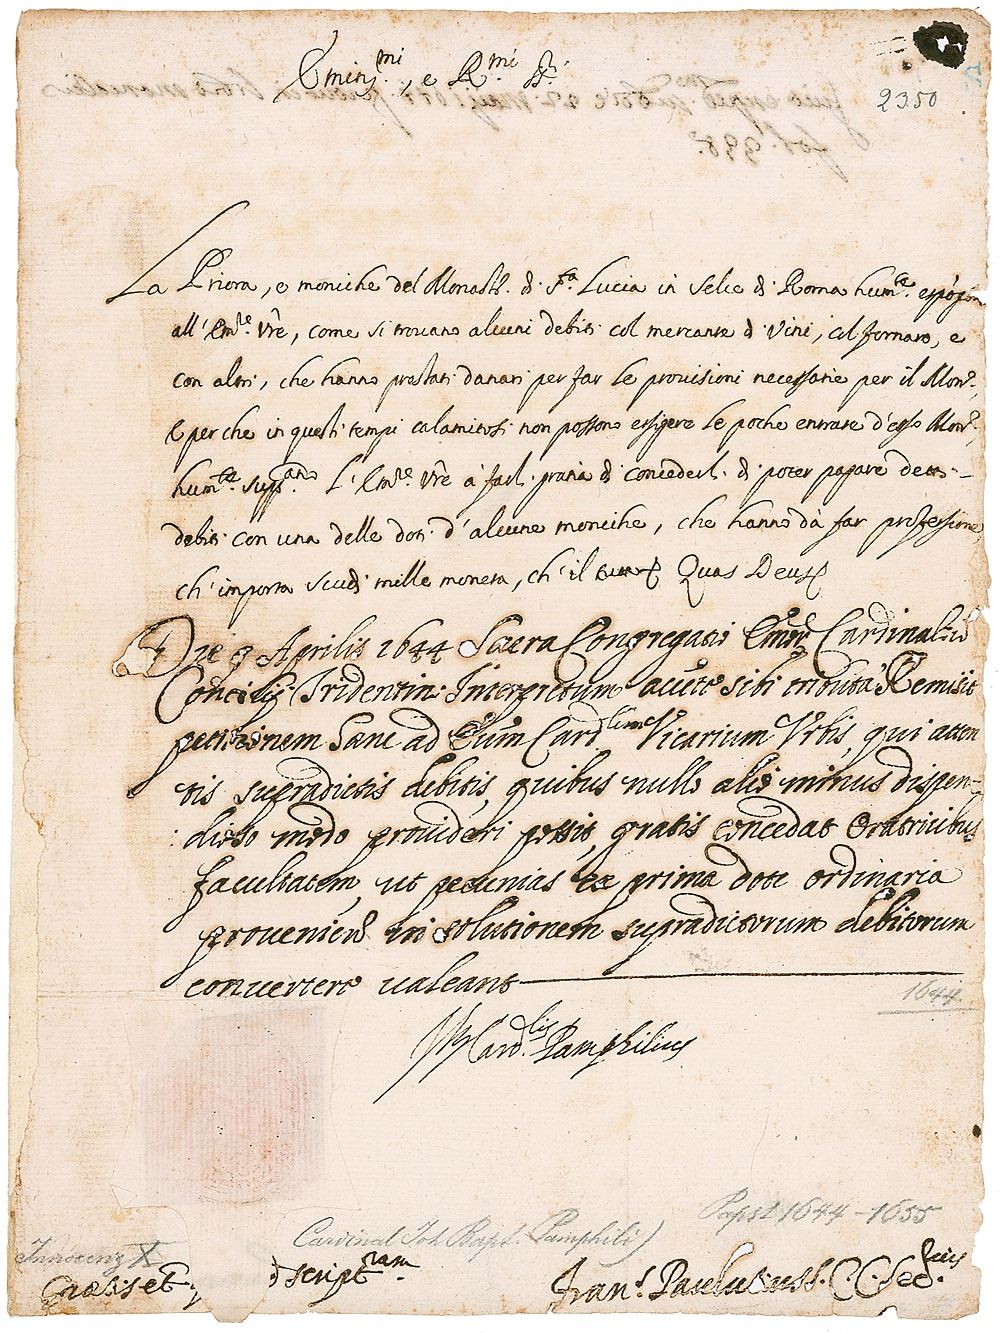 Emin.mi, e R.mi SS.ri
2350
fol. 338.
La Priora, e moniche del Monast.o di S.ta Lucia in Selce di Roma hum.te espōgon
all' Em.ze Vrē, come si trovano alcuni debiti col mercante di Vini, col fornaro, e
con altri, che hanno prestati danari per far le provisioni necessarie per il Mon.o
E perche in questi tempi calamitosi non possono essigere le poche entrate d'esso Mon.o
hum.te supp.ano l'Em.ze Vrē à farl. gratia di concederl. di poter pagare detti
debiti con una delle doti d'alcune moniche, che hanno dà far professione
ch'importa scudi mille moneta, ch'il tutto Quas Deus
Die 9 Aprilis 1644 Sacra Congregatio Emōr Cardinaliū
Concilij Tridentin: Interpretum auctē sibi tributa Remisit
petitionem Sane ad Eūm Card.lem Vicarium Urbis, qui atten
tis supradictis debitis, quibus nullo alio minus dispen-
dioso modo provideri possit, gratis concedat Oratricibus
facultatem, ut pecunias ex prima dote ordinaria
provenien. in solutionem supradictorum debitorum
convertere valeant
1644.
Card.lis Pamphilius
Papst 1644-1655
Cardinal Joh. Bapt. Pamphili)
Innocenz X
Gratis et
script.ram
Fran.s Paulutius S. C. C. Sec.rius